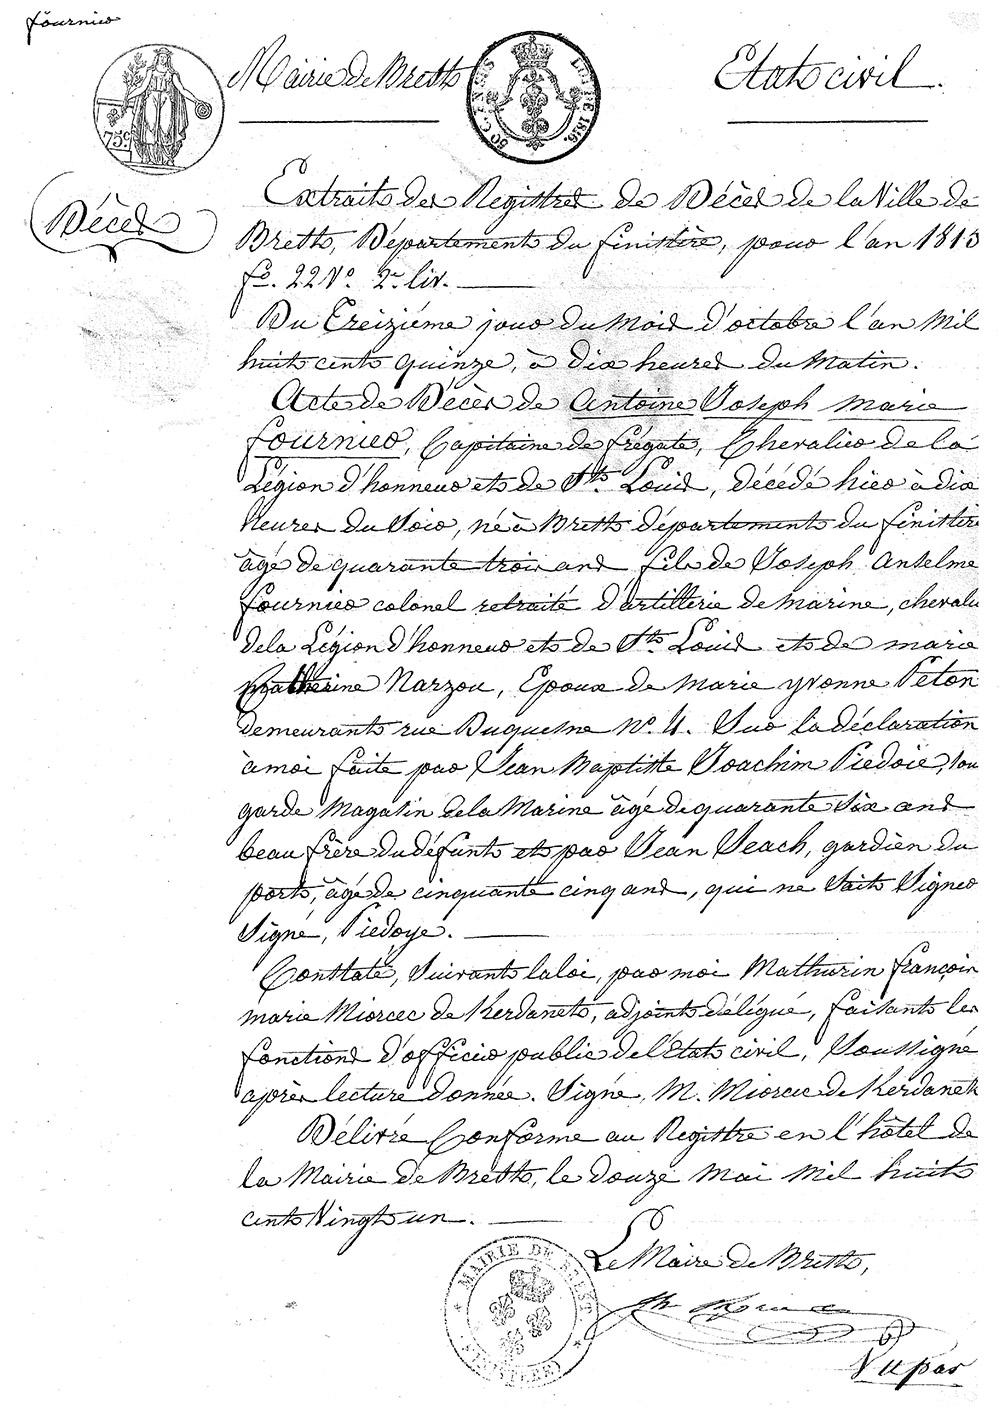 fournier
Mairie de Brest
Etat civil.
75c
50 C. EN SUS
LOI DE 1816
Décès
Extrait des Registres de Décès de la Ville de
Brest, Département du finistère, pour l'an 1815
fo. 22 Vo. 2e liv.
Du Treizième jour du mois d'octobre l'an mil
huit cent quinze, à dix heures du matin.
Acte de Décès de Antoine Joseph marie
fournier, Capitaine de frégate, Chevalier de la
Légion d'honneur et de St. Louis, décédé hier à dix
heures du soir, né à Brest département du finistère
âgé de quarante trois ans fils de Joseph Anselme
fournier colonel retraité d'artillerie de marine, chevalier
de la Légion d'honneur et de St. Louis et de marie
Catherine Narzou, Epoux de marie yvonne Peton
demeurant rue Duquesne no. 4. Sur la déclaration
à moi faite par Jean Baptiste Joachim Piedoie, sou
garde magasin de la marine âgé de quarante six ans
beau frère du défunt et par Jean Seach, gardien du
port, âgé de cinquante cinq ans, qui ne sait signer
Signé, Piedoye.
Constaté, suivant la loi, par moi Mathurin françois
marie Miorcec de Kerdanet, adjoint délégué, faisant les
fonctions d'officier public de l'Etat civil, Soussigné
après lecture donnée. Signé, M. Miorcec de Kerdanet
Délivré Conforme au Registre en l'hôtel de
la mairie de Brest, le douze mai mil huit
cent vingt un.
Le Maire de Brest,
MAIRIE DE BREST
(FINISTÈRE)
Vu par